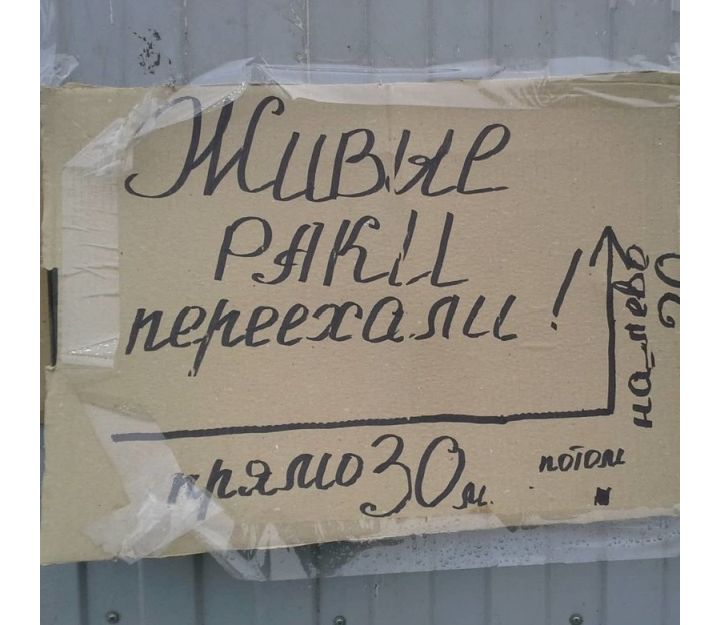 Живые
раки
переехали!
прямо 30 м.
потом
на_лево
20